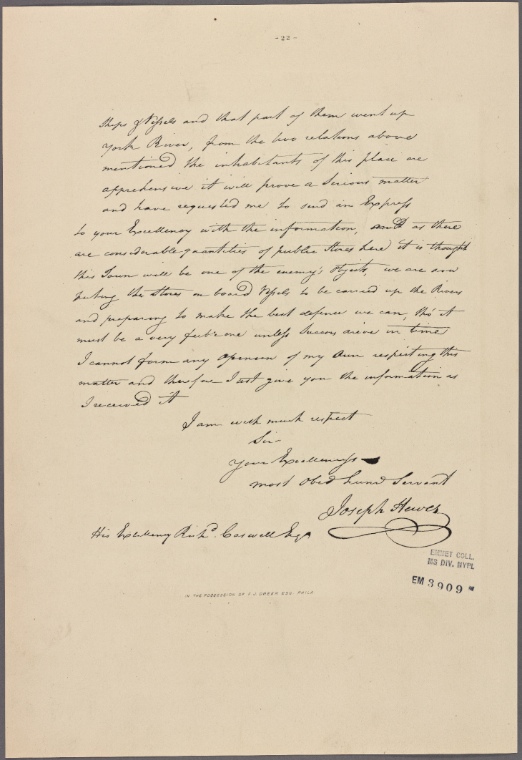 -22-
Ships & Vessels and that part of them went up
York River, from the two relations above
mentioned the inhabitants of this place are
apprehensive it will prove a Serious matter
and have requested me to send an Express
to your Excellency with the information, and as there
are considerable quantities of public Stores here it is thought
this Town will be one of the enemy's Objects, we are now
puting the Stores on board Vessels to be carried up the Rivers
and preparing to make the best defence we can, tho' it
must be a very feeble one unless Succour arives in time
I cannot form any Openion of my Own respecting this
matter and therefore I just give you the information as
I received it
I am with much respect
Sir
Your Excellencys
most Obed hum Servant
Joseph Hewes
His Excellency Richd. Caswell Esqr
IN THE POSSESSION OF J. J. ESQ. PHILA
EMMET COLL.
MS DIV. NYPL
EM 3909